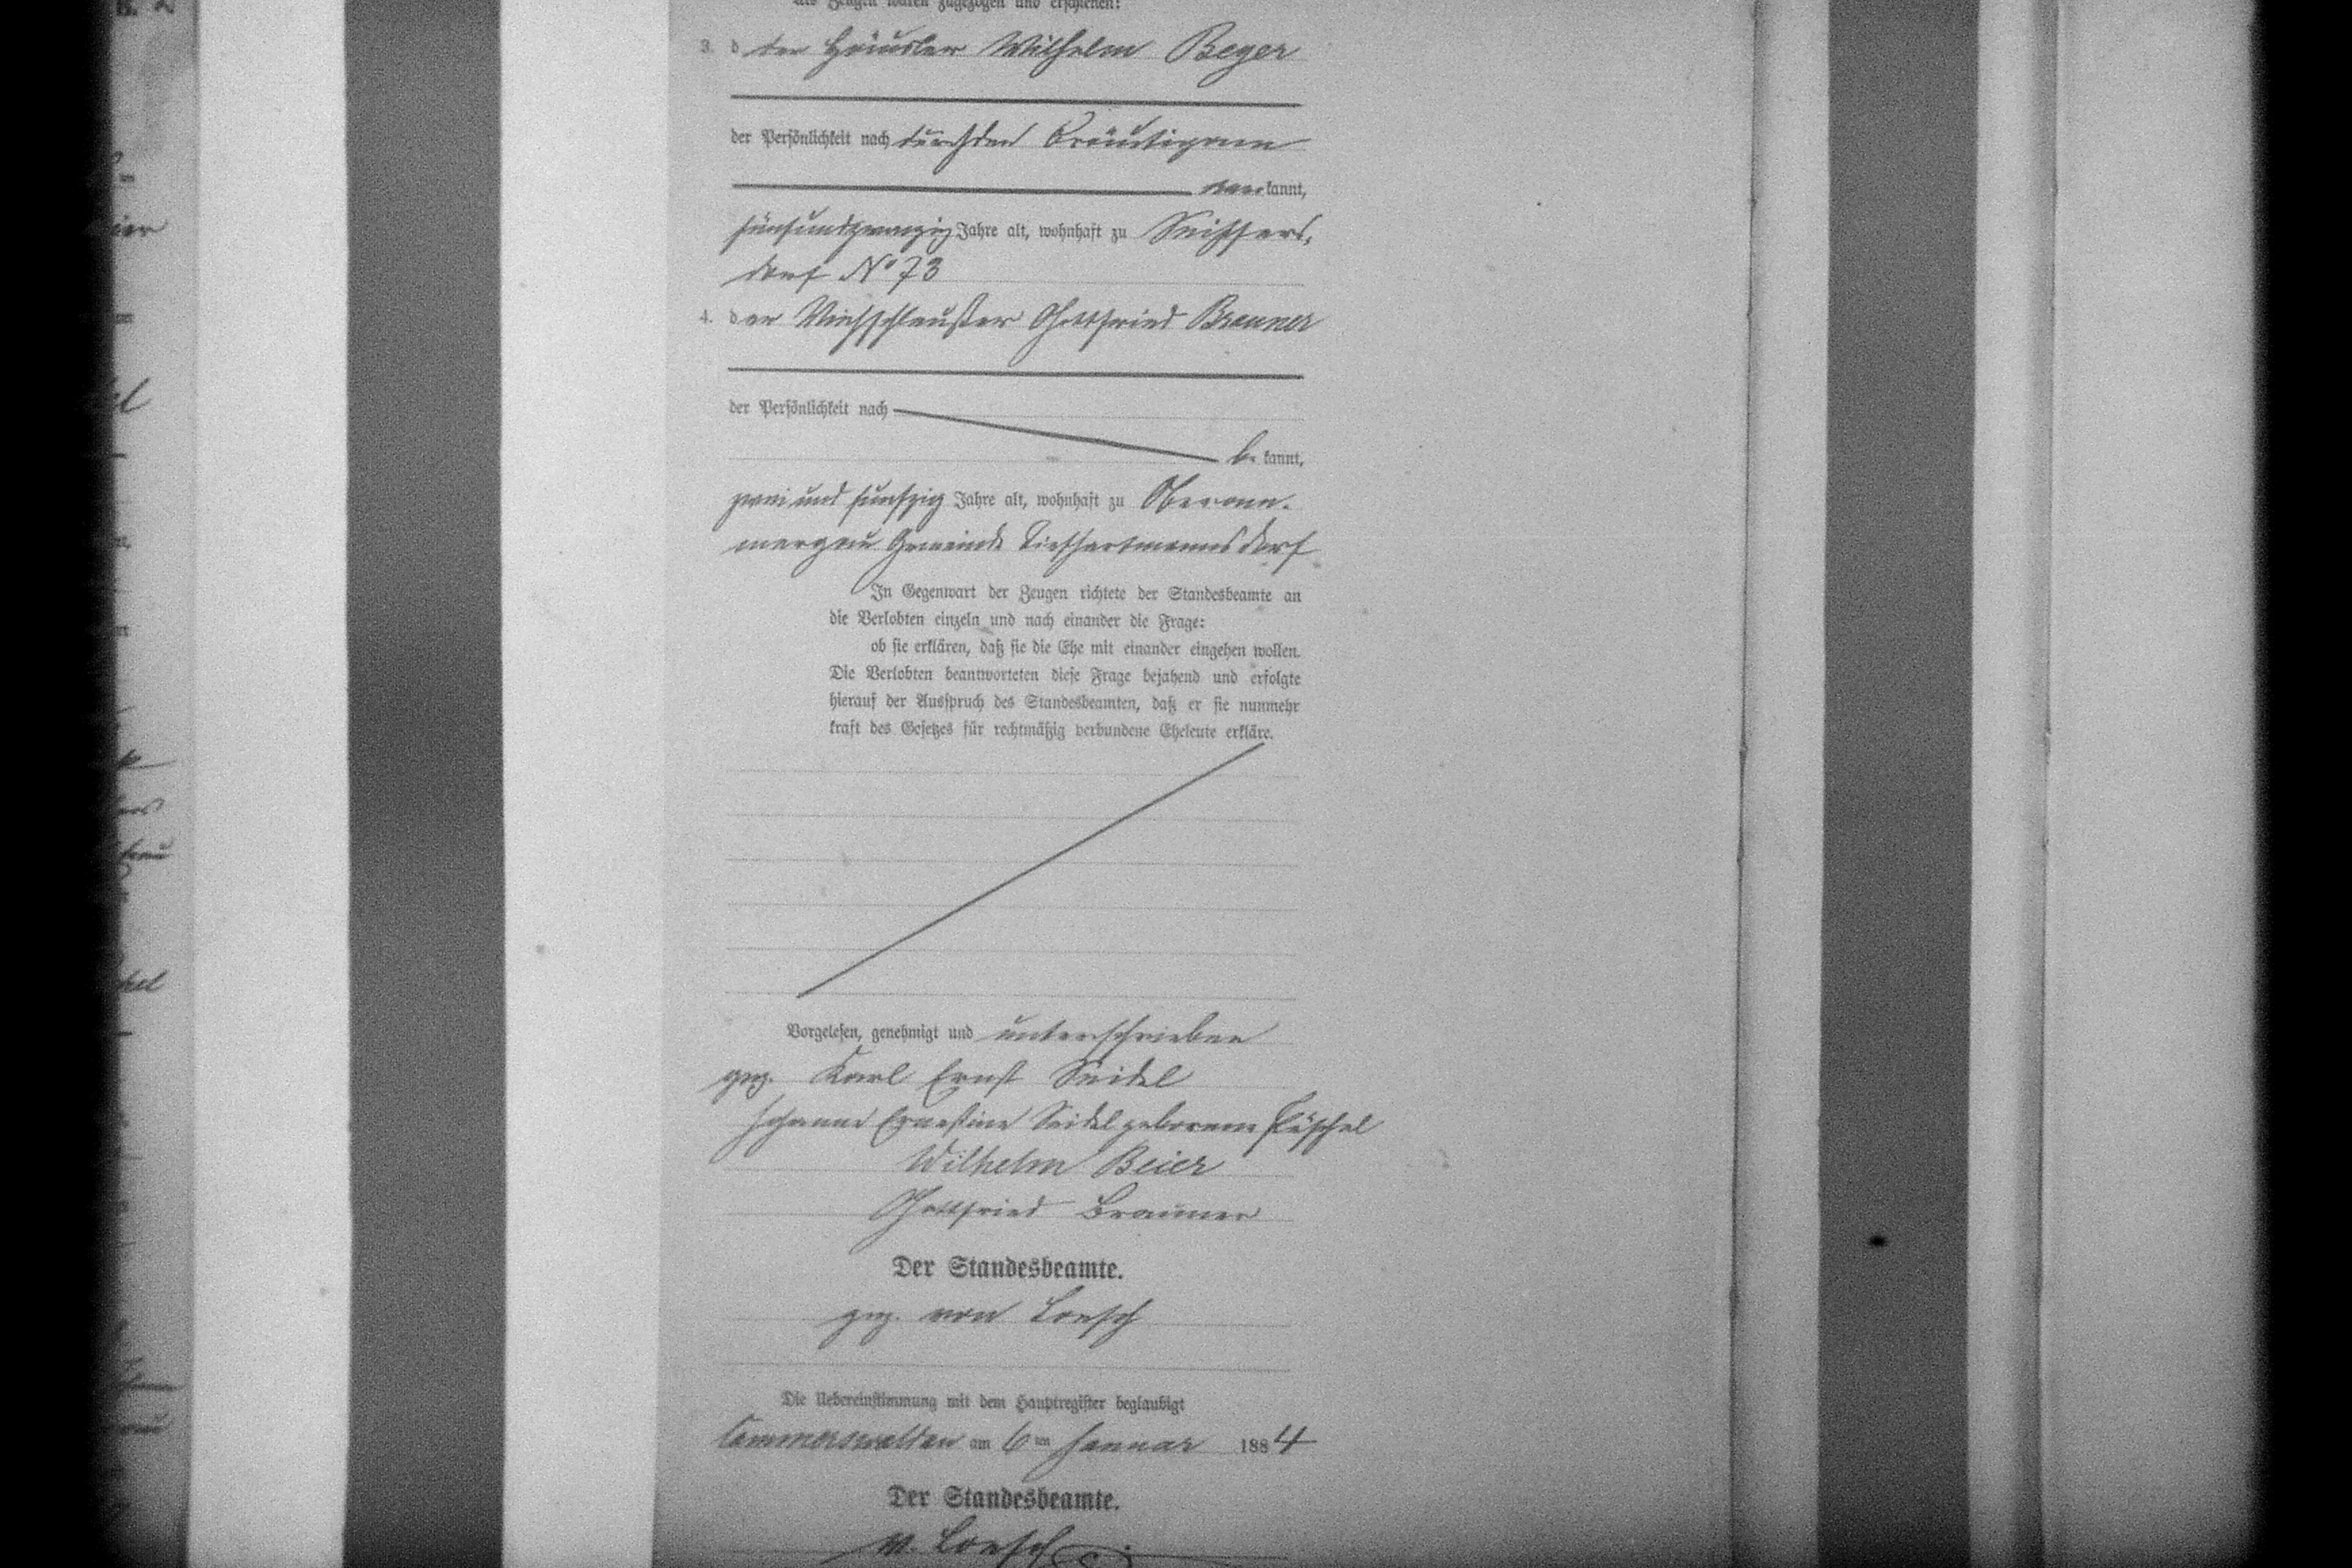 Als Zeugen waren zugezogen und erschienen:
3. d der Häusler Wilhelm Beyer
der Persönlichkeit nach durch den Bräutigam
anerkannt,
fünfundzwanzig Jahre alt, wohnhaft zu Seiffers,
dorf No 73
4. der Viehschleußer Gottfried Brauner
der Persönlichkeit nach
be kannt,
zwei und funfzig Jahre alt, wohnhaft zu Oberam.
mergau Gemeinde Tiefhartmannsdorf
In Gegenwart der Zeugen richtete der Standesbeamte an
die Verlobten einzeln und nach einander die Frage:
ob sie erklären, daß sie die Ehe mit einander eingehen wollen.
Die Verlobten beantworteten diese Frage bejahend und erfolgte
hierauf der Ausspruch des Standesbeamten, daß er sie nunmehr
kraft des Gesetzes für rechtmäßig verbundene Eheleute erkläre.
Vorgelesen, genehmigt und unterschrieben
gez. Karl Ernst Seidel
Johanne Ernestine Seidel geborene Püschel
Wilhelm Beier
Gottfried Brauner
Der Standesbeamte.
gez. von Loesch
Die Uebereinstimmung mit dem Hauptregister beglaubigt
Cammerswaldau am 6ten Januar 1884
Der Standesbeamte.
v. Loesch